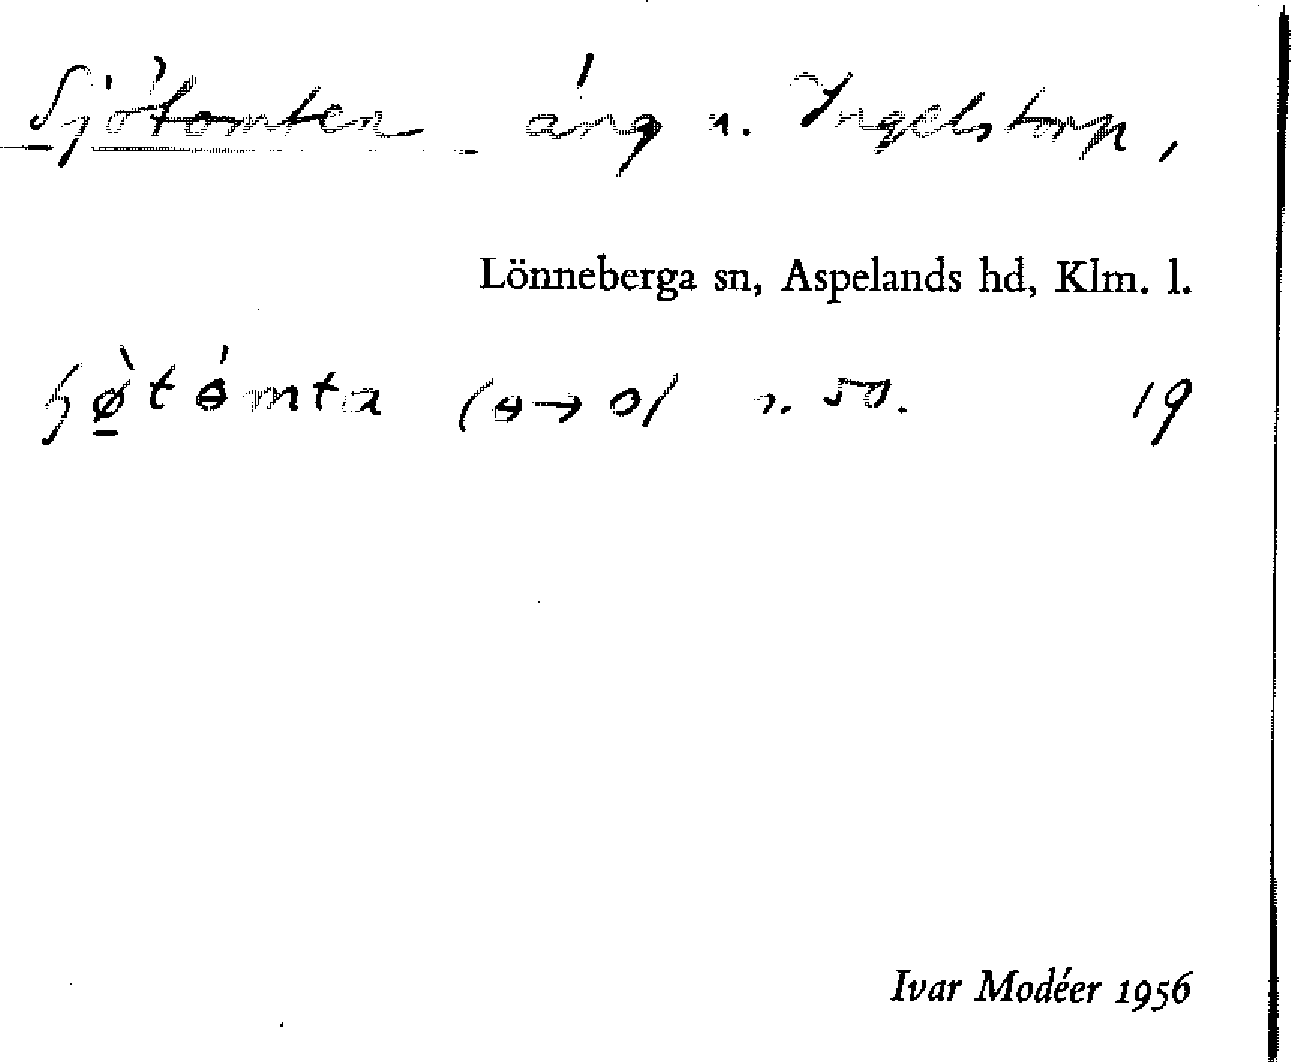 Sjötomten äng n. Ingelstorp,
Lönneberga sn, Aspelands hd, Klm. l.
ɧø̠̀tɵ́mta (ɵ→o) n. so. 19
Ivar Modéer 1956